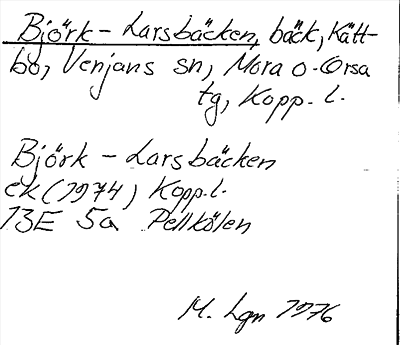 Björk - Larsbäcken, bäck, Kätt-
bo, Venjans sn, Mora o. Orsa
tg, Kopp. l.
Björk - Larsbäcken
ek (1974) Kopp. l.
13E 5a Pellkölen
M. Lgn 1976